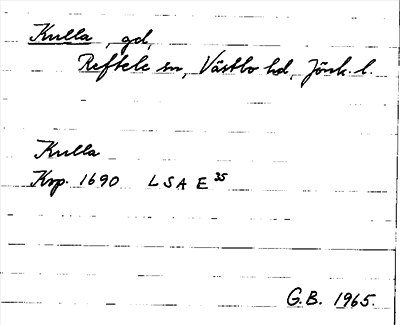 Kulla, gd,
Reftele sn, Västbo hd, Jönk. l.
Kulla
Krp. 1690 LSA E 35
G.B. 1965.